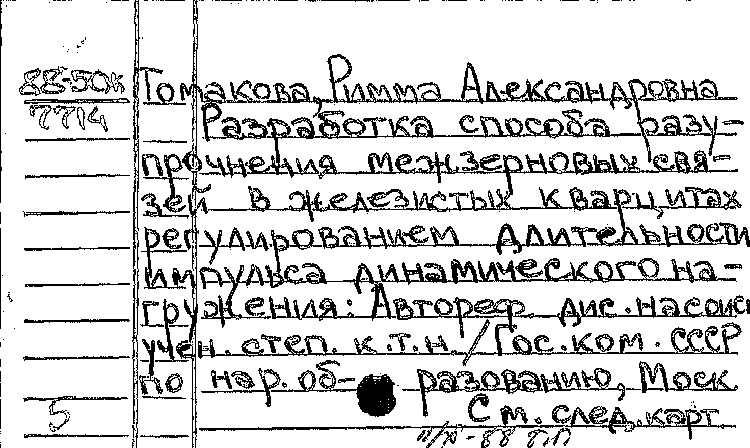 88-50к
7714
Томакова, Римма Александровна
Разработка способа разу-
прочнения межзерновых свя-
зей в железистых кварцитах
регулированием длительности
импульса динамического на-
гружения: Автореф. дис. на соиск
учен. степ. к.т.н. / Гос. ком. СССР
по нар. об- разованию, Моск
5 См. след. карт.